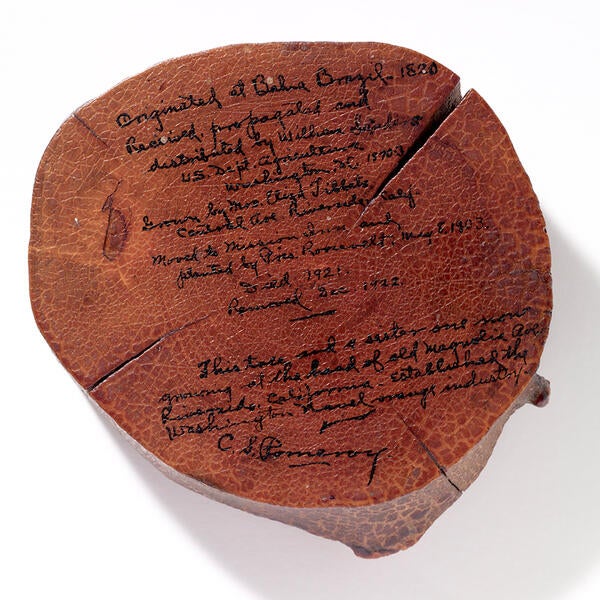 Originated at Bahia Brazil - 1820
Received, propagated and
distributed by William Saunders
U.S. Dept. Agriculture
Washington, D.C. 1870-3
Grown by Mrs. Eliza Tibbets
Central Ave Riverside, Calif.
Moved to Mission Inn and
planted by Pres. Roosevelt, May 8, 1903.
Died 1921.
Removed Dec 1922.
This tree and a sister one now
growing at the head of old Magnolia Ave.
Riverside, California, established the
Washington Navel orange industry.
C. S. Pomeroy